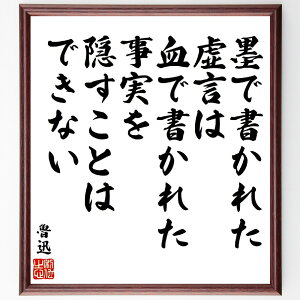 墨で書かれた
虚言は
血で書かれた
事実を
隠すことは
できない
魯迅